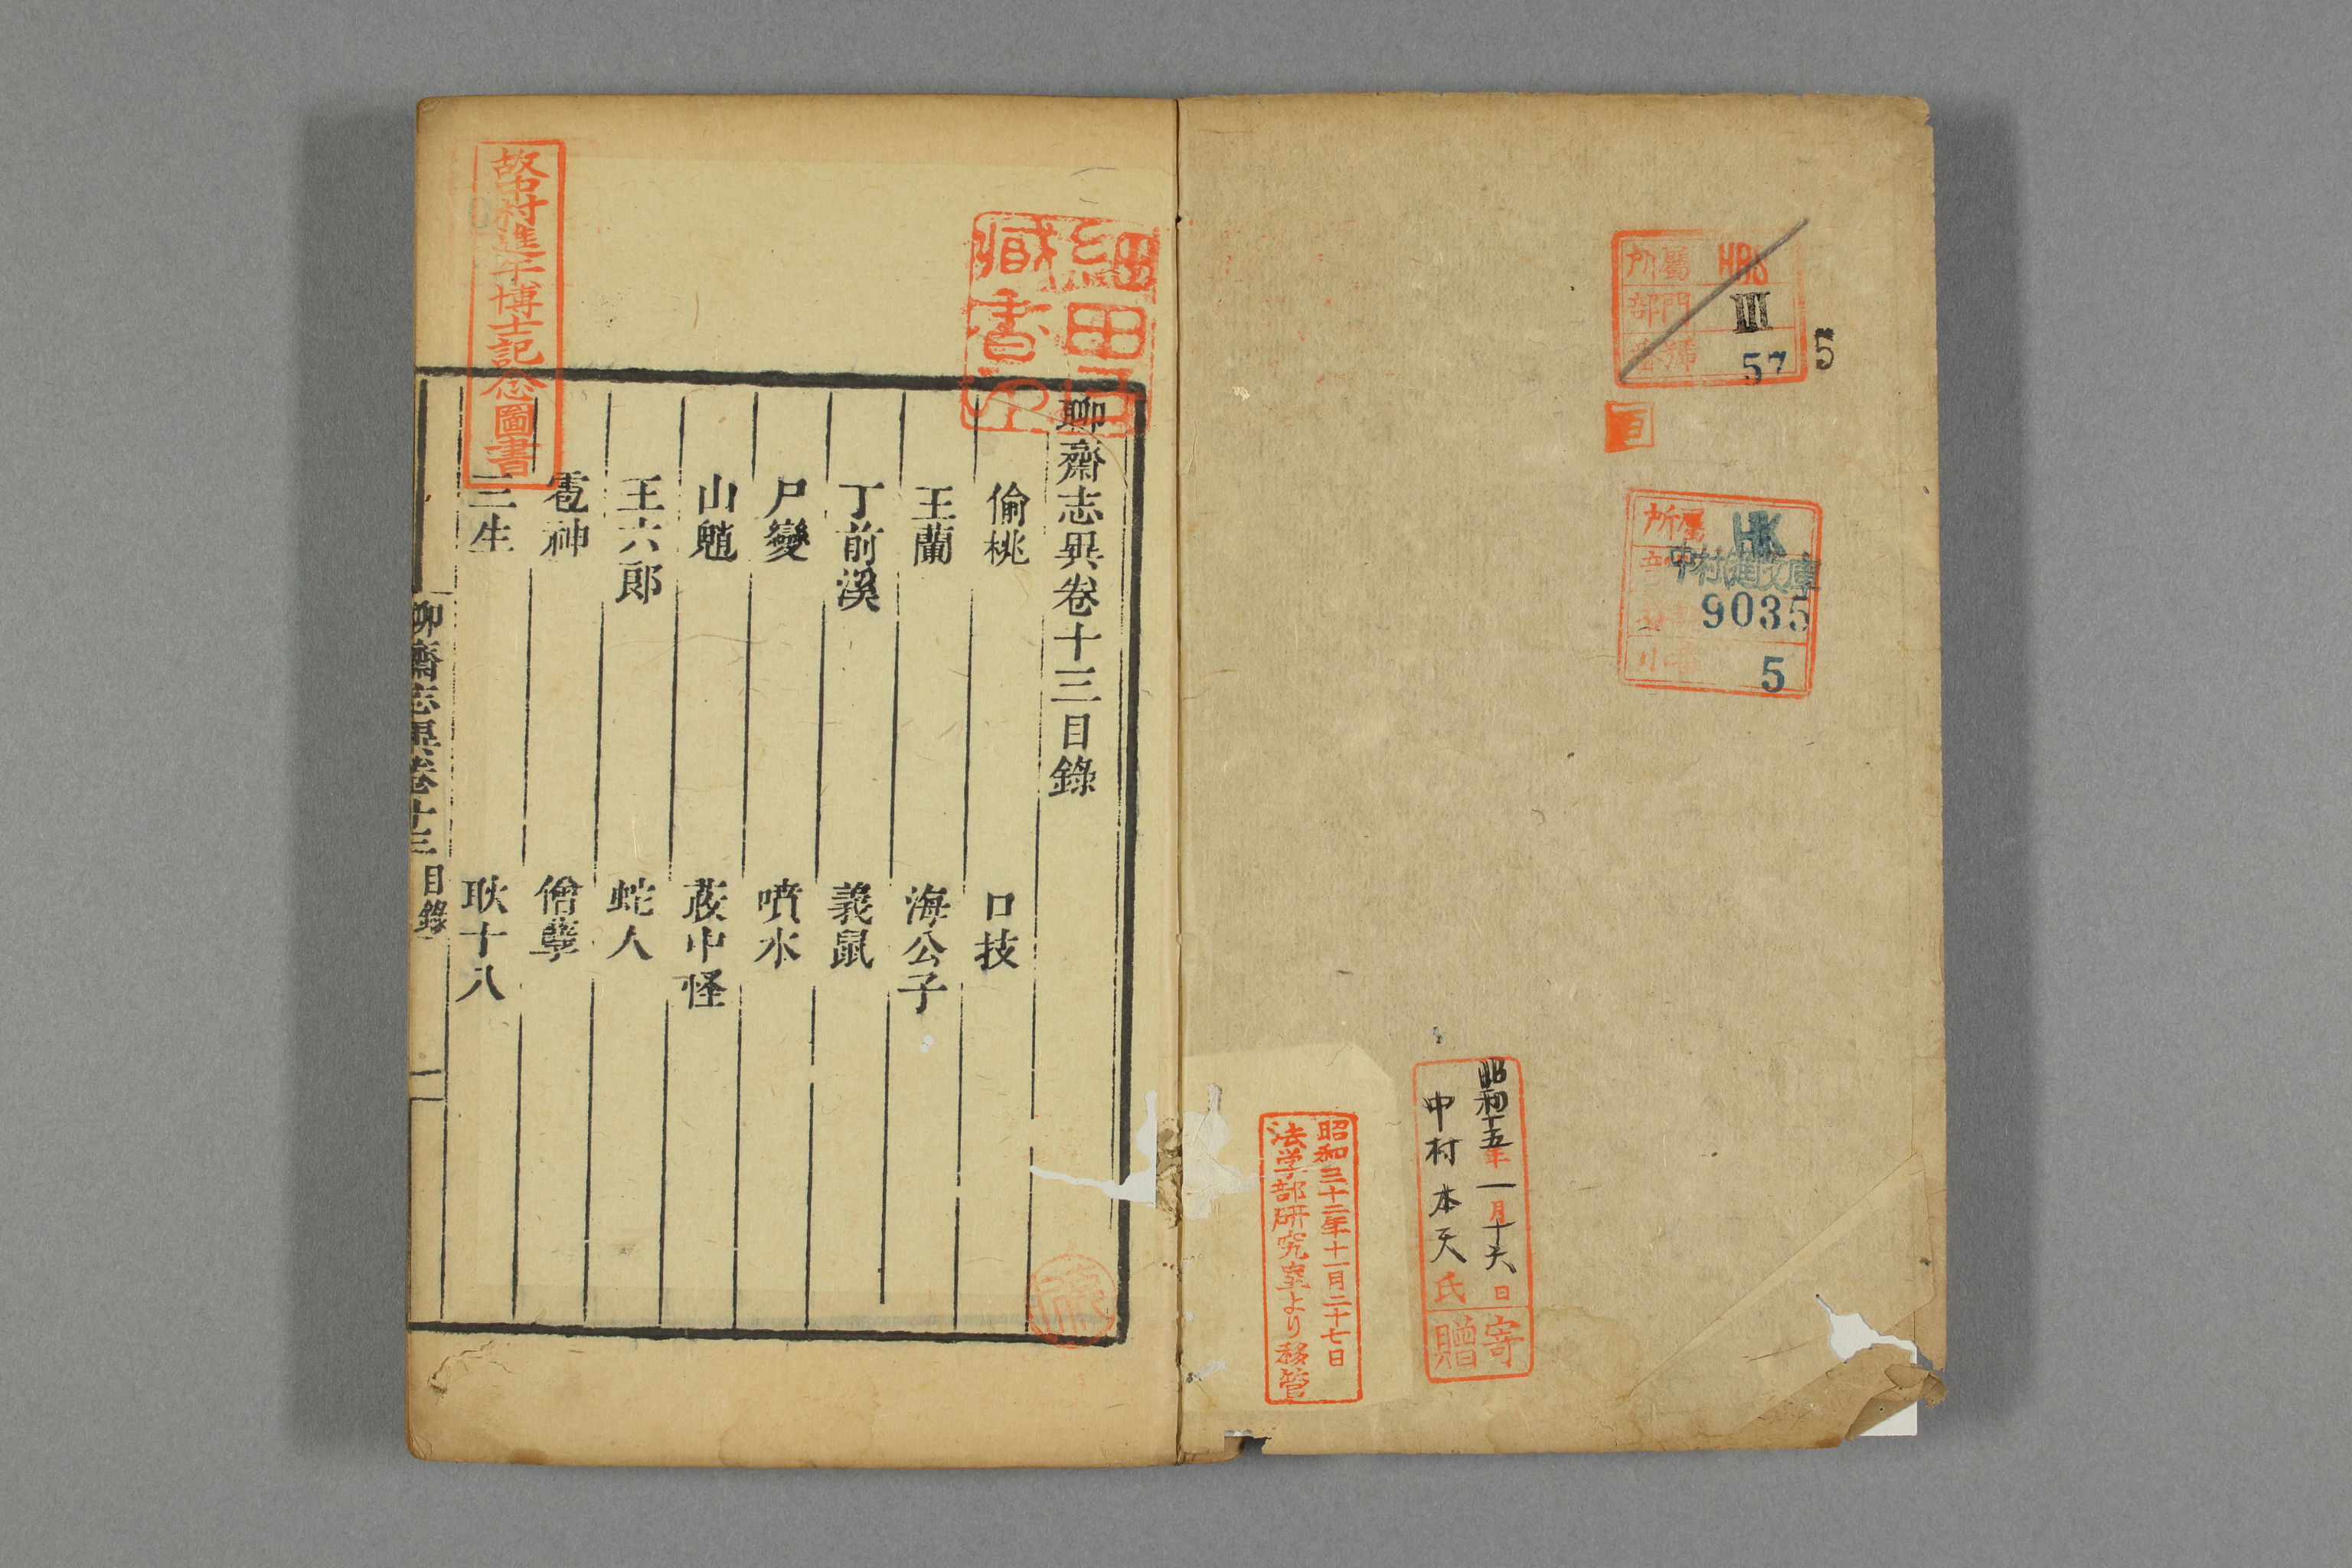 所屬 HRS
部門 III
番號 57
5
所屬 HK
中村進午文庫
9035
5
昭和十五年一月十六日
中村本天氏
寄贈
昭和三十二年十一月二十七日
法学部研究室より移管
細田氏
藏書印
聊齋志異卷十三目錄
偷桃
口技
王蘭
海公子
丁前溪
義鼠
尸變
噴水
山魈
荍中怪
王六郎
蛇人
雹神
僧孽
三生
耿十八
聊齋志異卷十三 目錄 一
故中村進午博士記念圖書